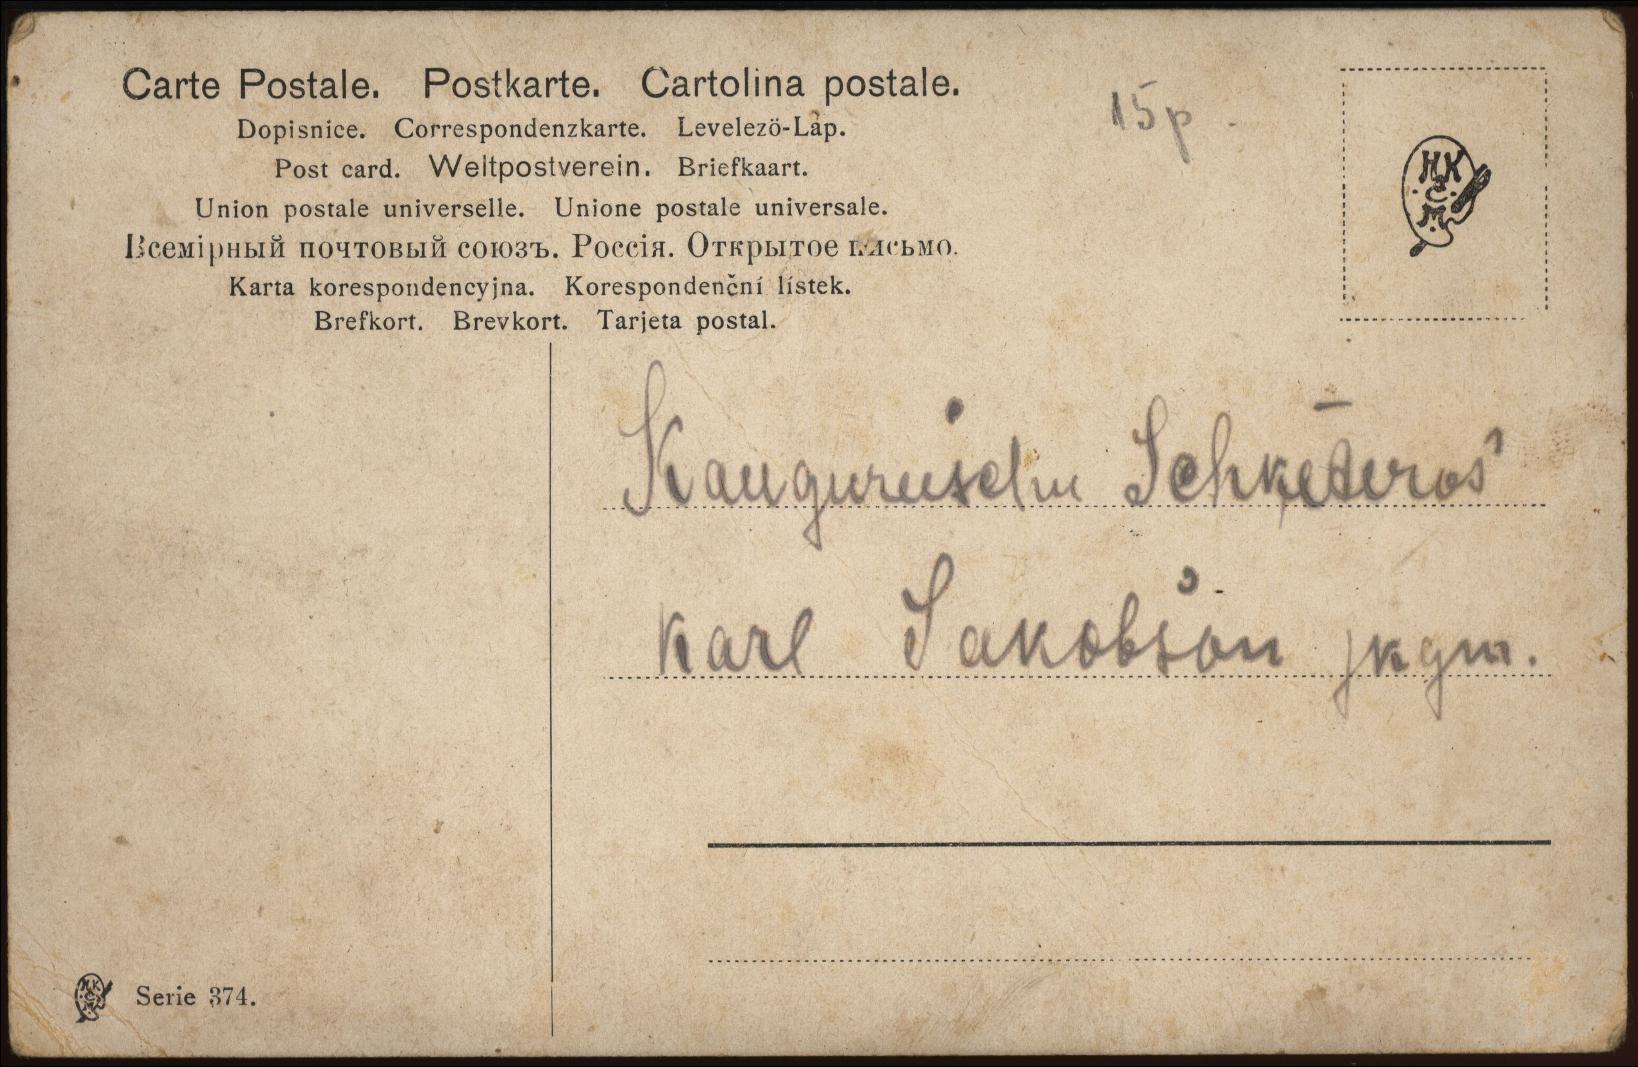 Carte Postale. Postkarte. Cartolina postale.
Dopisnice. Correspondenzkarte. Levelezö-Lap.
Post card. Weltpostverein. Briefkaart.
Union postale universelle. Unione postale universale.
Всемірный почтовый союзъ. Россія. Открытое письмо.
Karta korespondencyjna. Korespondenční lístek.
Brefkort. Brevkort. Tarjeta postal.
15p.
HK
&
M.
Karl Jakobson jkgm.
Serie 374.